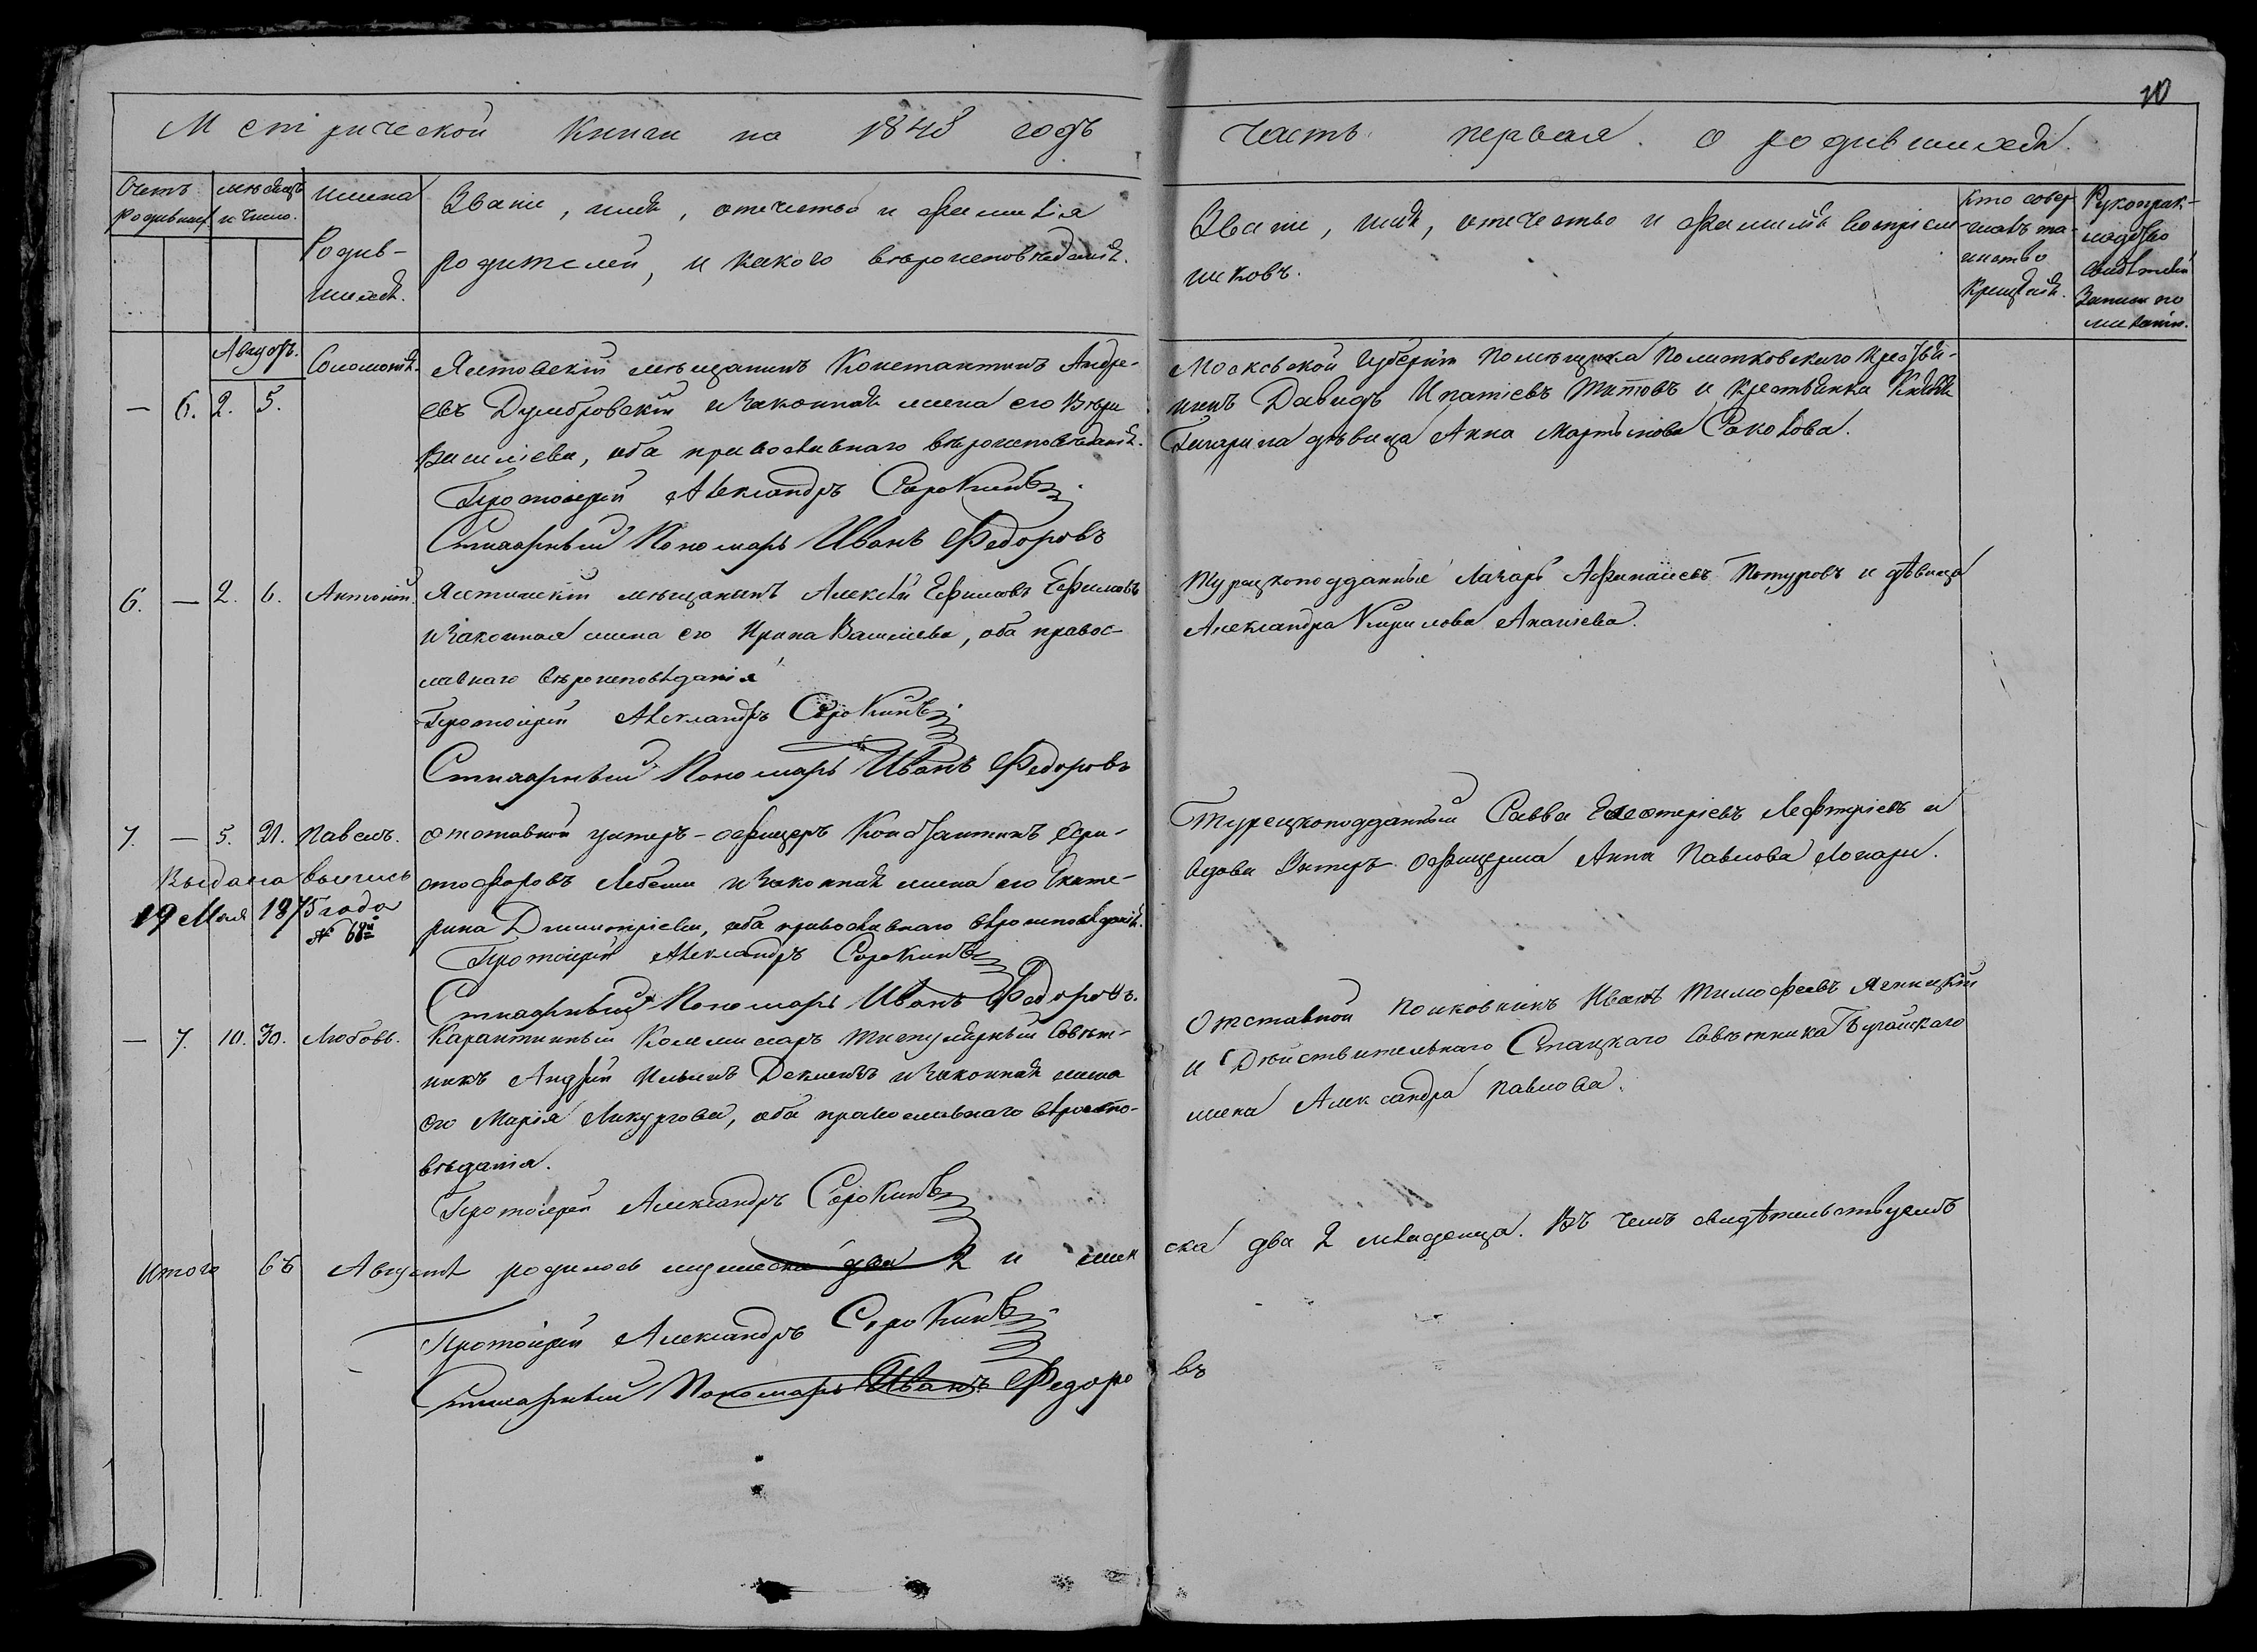 10
Метрической книги на 1848 годъ
часть первая о родившихся.
Счетъ родивших.
мѣсяцъ и число.
имена Родив-
шихся.
Званіе, имя, отечество и фамилія
родителей, и какого вѣроисповѣданія.
Званіе, имя, отечество и фамилія воспріем-
никовъ.
Кто совер-
шалъ та-
инство
крещенія.
Рукоприк-
ладство
свидѣтелей
записи по
желанію.
Августъ.
— 6. 2. 5. Соломонія.
Ялтовскій мѣщанинъ Константинъ Андре-
евъ Думбровскій и законная жена его Вѣра
Василіева, оба православнаго вѣроисповѣданія.
Протоіерей Александръ Сорокинъ
Стихарный Пономарь Иванъ Федоровъ
Московской губерніи помѣщика Политковскаго крестья-
нинъ Давидъ Ипатіевъ Титовъ и крестьянка Князя
Гагарина дѣвица Анна Мартынова Соколова.
6. — 2. 6. Антоній.
Ялтинскій мѣщанинъ Алексѣй Ефимовъ Ефимовъ
и законная жена его Ирина Василіева, оба правос-
лавнаго вѣроисповѣданія
Протоіерей Александръ Сорокинъ
Стихарный Пономарь Иванъ Федоровъ
Турецкоподданные Лазарь Афанасіевъ Потуровъ и дѣвица
Александра Кирилова Ананіева.
7. — 5. 21. Павелъ.
Выдана выпись
19 Мая 1875 года
№ 68й
отставной унтеръ-офицеръ Константинъ Хри-
стофоровъ Лебеши и законная жена его Екате-
рина Димитріева, оба православнаго вѣроисповѣданія.
Протоіерей Александръ Сорокинъ
Стихарный Пономарь Иванъ Федоровъ.
Турецкоподданный Савва Елефтеріевъ Лефтеріевъ и
вдова Унтеръ-офицерша Анна Павлова
— 7. 10. 30. Любовь.
Карантинный Коммисаръ Титулярный Совѣт-
никъ Андрей Ильинъ и законная жена
его Марія Ликургова, оба православнаго вѣроиспо-
вѣданія.
Протоіерей Александръ Сорокинъ
Отставной полковникъ Иванъ Тимофеевъ
и Дѣйствительнаго Статскаго Совѣтника
жена Александра Павлова.
Итого въ Августѣ родилось мужеска два 2 и жен
ска два 2 младенца. Въ чемъ свидѣтельствуемъ
Протоіерей Александръ Сорокинъ
Стихарный Пономарь Иванъ Федоро
въ